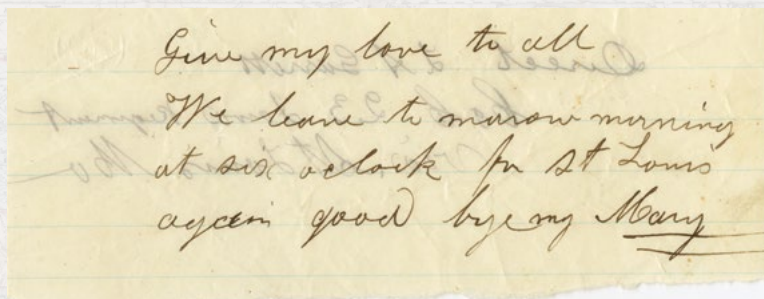 Give my love to all
We leave to morrow morning
at six oclock for St Louis
again good bye my Mary